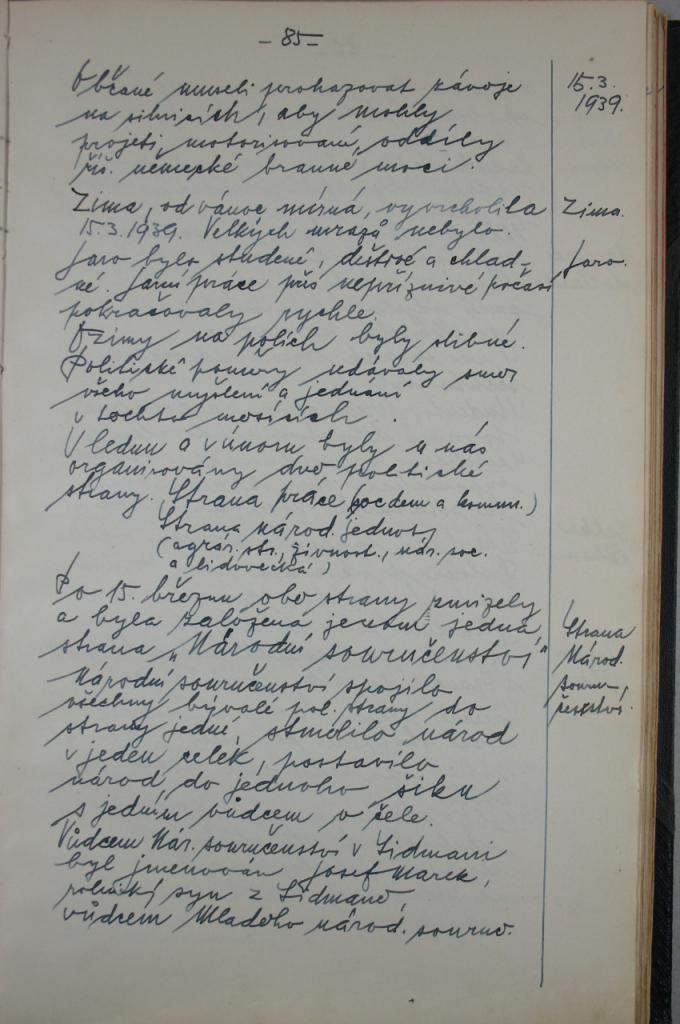 - 85 -
Občané museli prohazovat závěje
na silnicích, aby mohly
projeti motorisované oddíly
říš. německé branné moci.
15.3.
1939.
Zima, od vánoc mírná, vyvrcholila
15.3.1939. Velkých mrazů nebylo.
Zima.
Jaro bylo studené, deštivé a chlad-
né. Jarní práce přes nepříznivé počasí
pokračovaly rychle.
Jaro.
Ozimy na polích byly slibné.
Politické poměry udávaly směr
všeho myšlení a jednání
v těchto měsících.
V lednu a v únoru byly u nás
organisovány dvě politické
strany. Strana práce (soc dem a komun.)
Strana národ. jednoty
(agrár. str., živnost., nár. soc.
a lidovecká)
Po 15. březnu obě strany zmizely
a byla založena jenom jedna
strana „Národní souručenství"
Národní souručenství spojilo
všechny bývalé pol. strany do
strany jedné, stmelilo národ
v jeden celek, postavilo
národ do jednoho šiku
s jedním vůdcem v čele.
Strana
Národ.
souru-
čenství.
Vůdcem Nár. souručenství v
byl jmenován Josef Marek,
rolnický syn z
vůdcem Mladého národ. souruč.